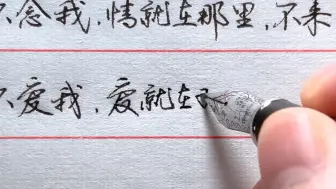 念我，情就在那里，不来
不爱我，爱就在